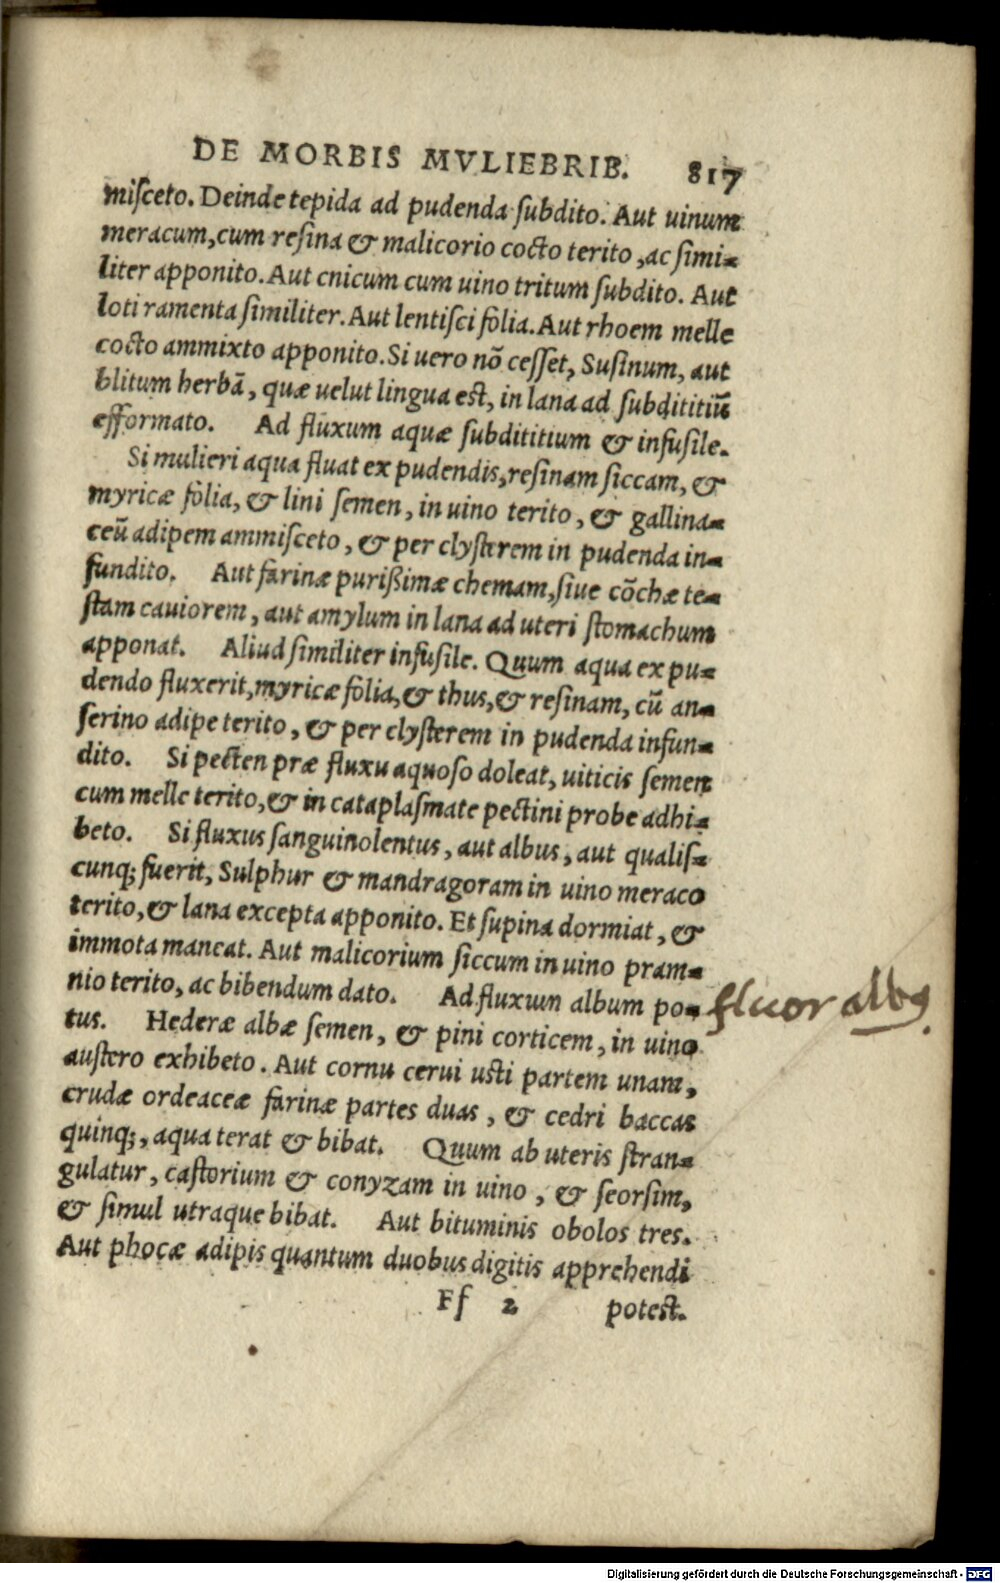 DE MORBIS MVLIEBRIB. 817
miſceto. Deinde tepida ad pudenda ſubdito. Aut uinum
meracum, cum reſina & malicorio cocto terito, ac ſimi-
liter apponito. Aut cnicum cum uino tritum ſubdito. Aut
loti ramenta ſimiliter. Aut lentiſci folia. Aut rhoem melle
cocto ammixto apponito. Si uero nõ ceſſet, Suſinum, aut
blitum herbã, quæ uelut lingua est, in lana ad ſubdititiũ
efformato. Ad fluxum aquæ ſubdititium & infuſile.
Si mulieri aqua fluat ex pudendis, reſinam ſiccam, &
myricæ folia, & lini ſemen, in uino terito, & gallina-
ceũ adipem ammiſceto, & per clyſterem in pudenda in-
fundito. Aut farinæ purißimæ chemam, ſiue cõchæ te-
ſtam cauiorem, aut amylum in lana ad uteri ſtomachum
apponat. Aliud ſimiliter infuſile. Quum aqua ex pu-
dendo fluxerit, myricæ folia, & thus, & reſinam, cũ an-
ſerino adipe terito, & per clyſterem in pudenda infun-
dito. Si pecten præ fluxu aquoſo doleat, uiticis ſemen
cum melle terito, & in cataplaſmate pectini probe adhi-
beto. Si fluxus ſanguinolentus, aut albus, aut qualiſ-
cunq; fuerit, Sulphur & mandragoram in uino meraco
terito, & lana excepta apponito. Et ſupina dormiat, &
immota maneat. Aut malicorium ſiccum in uino pram-
nio terito, ac bibendum dato. Ad fluxum album po-
fluor albꝰ
tus. Hederæ albæ ſemen, & pini corticem, in uino
auſtero exhibeto. Aut cornu cerui uſti partem unam,
crudæ ordeaceæ farinæ partes duas, & cedri baccas
quinq;, aqua terat & bibat. Quum ab uteris ſtran-
gulatur, caſtorium & conyzam in uino, & ſeorſim,
& ſimul utraque bibat. Aut bituminis obolos tres.
Aut phocæ adipis quantum duobus digitis apprehendi
Ff 2 poteſt.
Digitalisierung gefördert durch die Deutsche Forschungsgemeinschaft - DFG